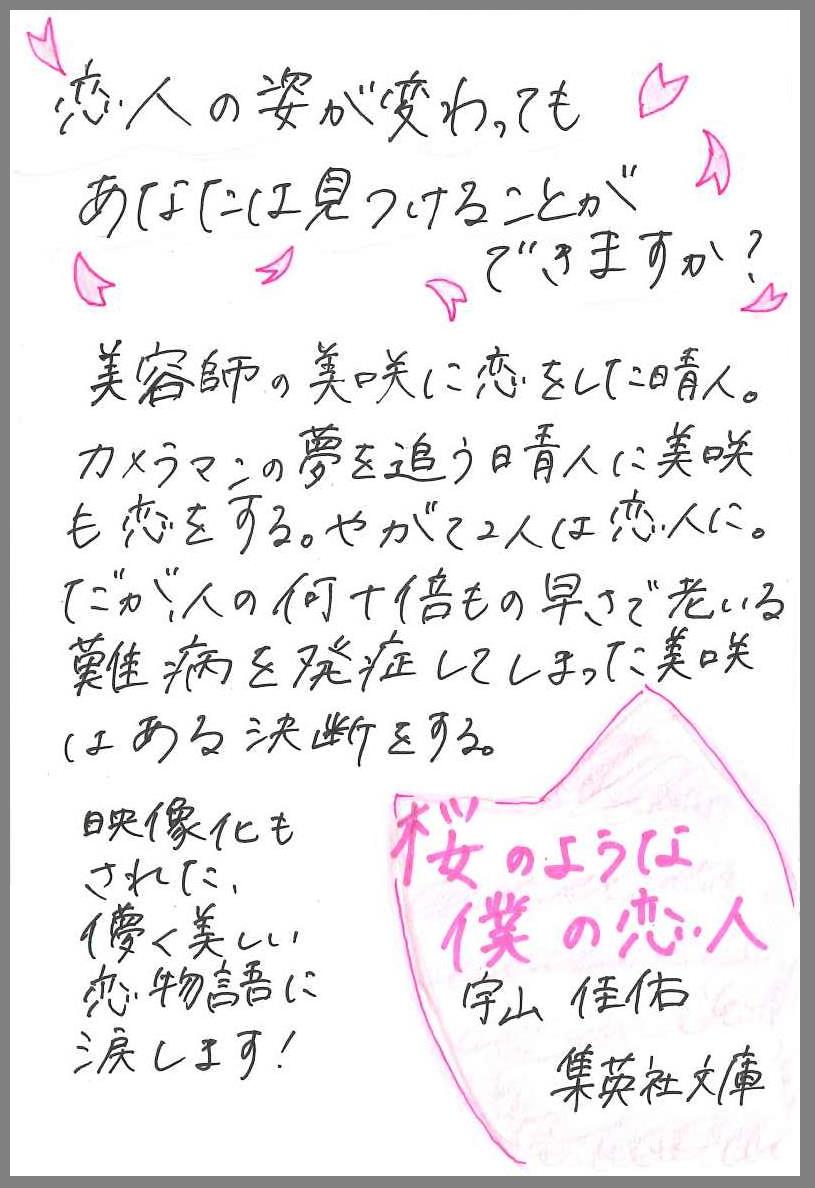 恋人の姿が変わっても
あなたは見つけることが
できますか?
美容師の美咲に恋をした晴人。
カメラマンの夢を追う晴人に美咲
も恋をする。やがて2人は恋人に。
だが、人の何十倍もの早さで老いる
難病を発症してしまった美咲
はある決断をする。
映像化も
された、
儚く美しい
恋物語に
涙します!
桜のような
僕の恋人
宇山 佳佑
集英社文庫